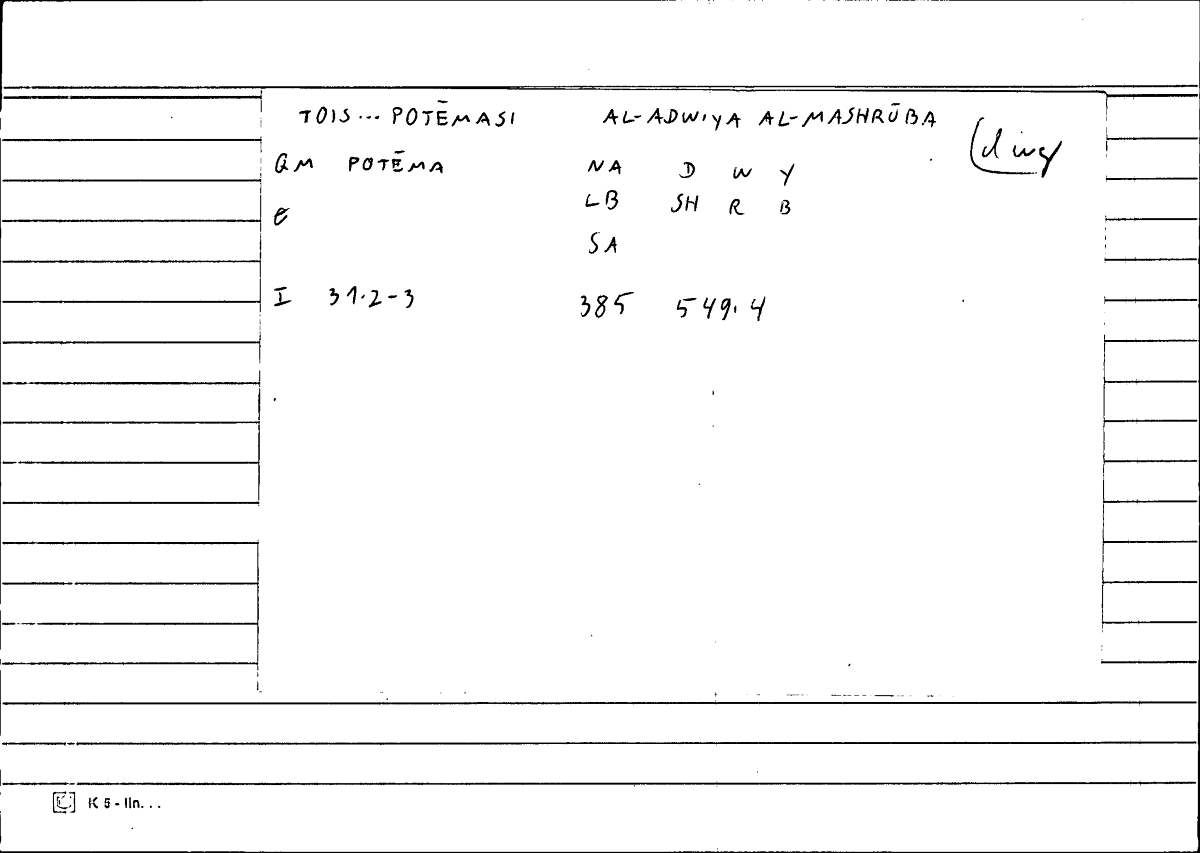 TOIS... POTĒMASI AL-ADWIYA AL-MASHRŪBA
QM POTĒMA NA D W Y
LB SH R B
SA
I 31.2-3 385 549.4
K 5 - lin...